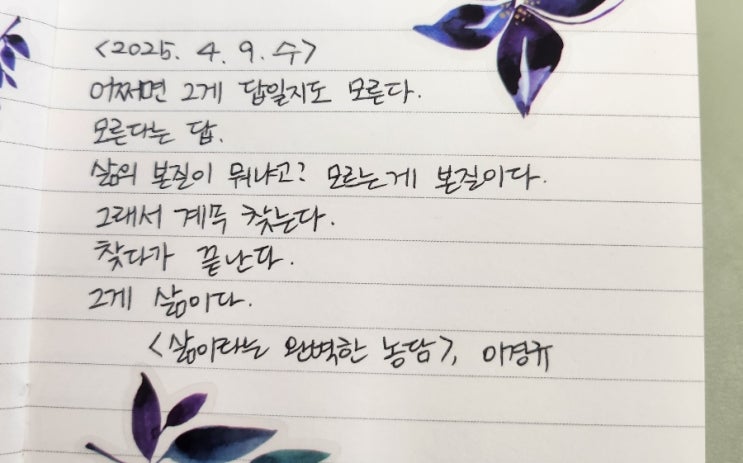 <2025. 4. 9. 수>
어쩌면 그게 답일지도 모른다.
모른다는 답.
삶의 본질이 뭐냐고? 모르는게 본질이다.
그래서 계속 찾는다.
찾다가 끝난다.
그게 삶이다.
<삶이라는 완벽한 농담>, 이경규